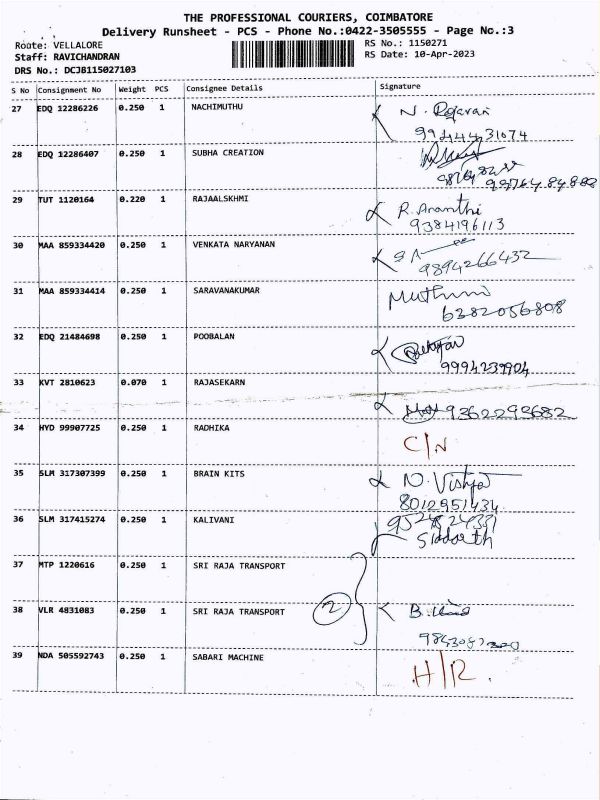 THE PROFESSIONAL COURIERS, COIMBATORE
Delivery Runsheet - PCS - Phone No.:0422-3505555 - Page No.:3
Route: VELLALORE
RS No.: 1150271
Staff: RAVICHANDRAN
RS Date: 10-Apr-2023
DRS No.: DCJB115027103
S No Consignment No Weight PCS Consignee Details Signature
27 EDQ 12286226 0.250 1 NACHIMUTHU
N. Rajavan
9944431074
28 EDQ 12286407 0.250 1 SUBHA CREATION
29 TUT 1120164 0.220 1 RAJAALSKHMI
R. Ananthi
9384196113
30 MAA 859334420 0.250 1 VENKATA NARYANAN
9894266432
31 MAA 859334414 0.250 1 SARAVANAKUMAR
6382056808
32 EDQ 21484698 0.250 1 POOBALAN
9994239904
33 KVT 2810623 0.070 1 RAJASEKARN
9362292682
34 HYD 99907725 0.250 1 RADHIKA
C/N
35 SLM 317307399 0.250 1 BRAIN KITS
8012951434
36 SLM 317415274 0.250 1 KALIVANI
Siddarth
37 MTP 1220616 0.250 1 SRI RAJA TRANSPORT
38 VLR 4831083 0.250 1 SRI RAJA TRANSPORT 2
39 NDA 505592743 0.250 1 SABARI MACHINE
H/R.